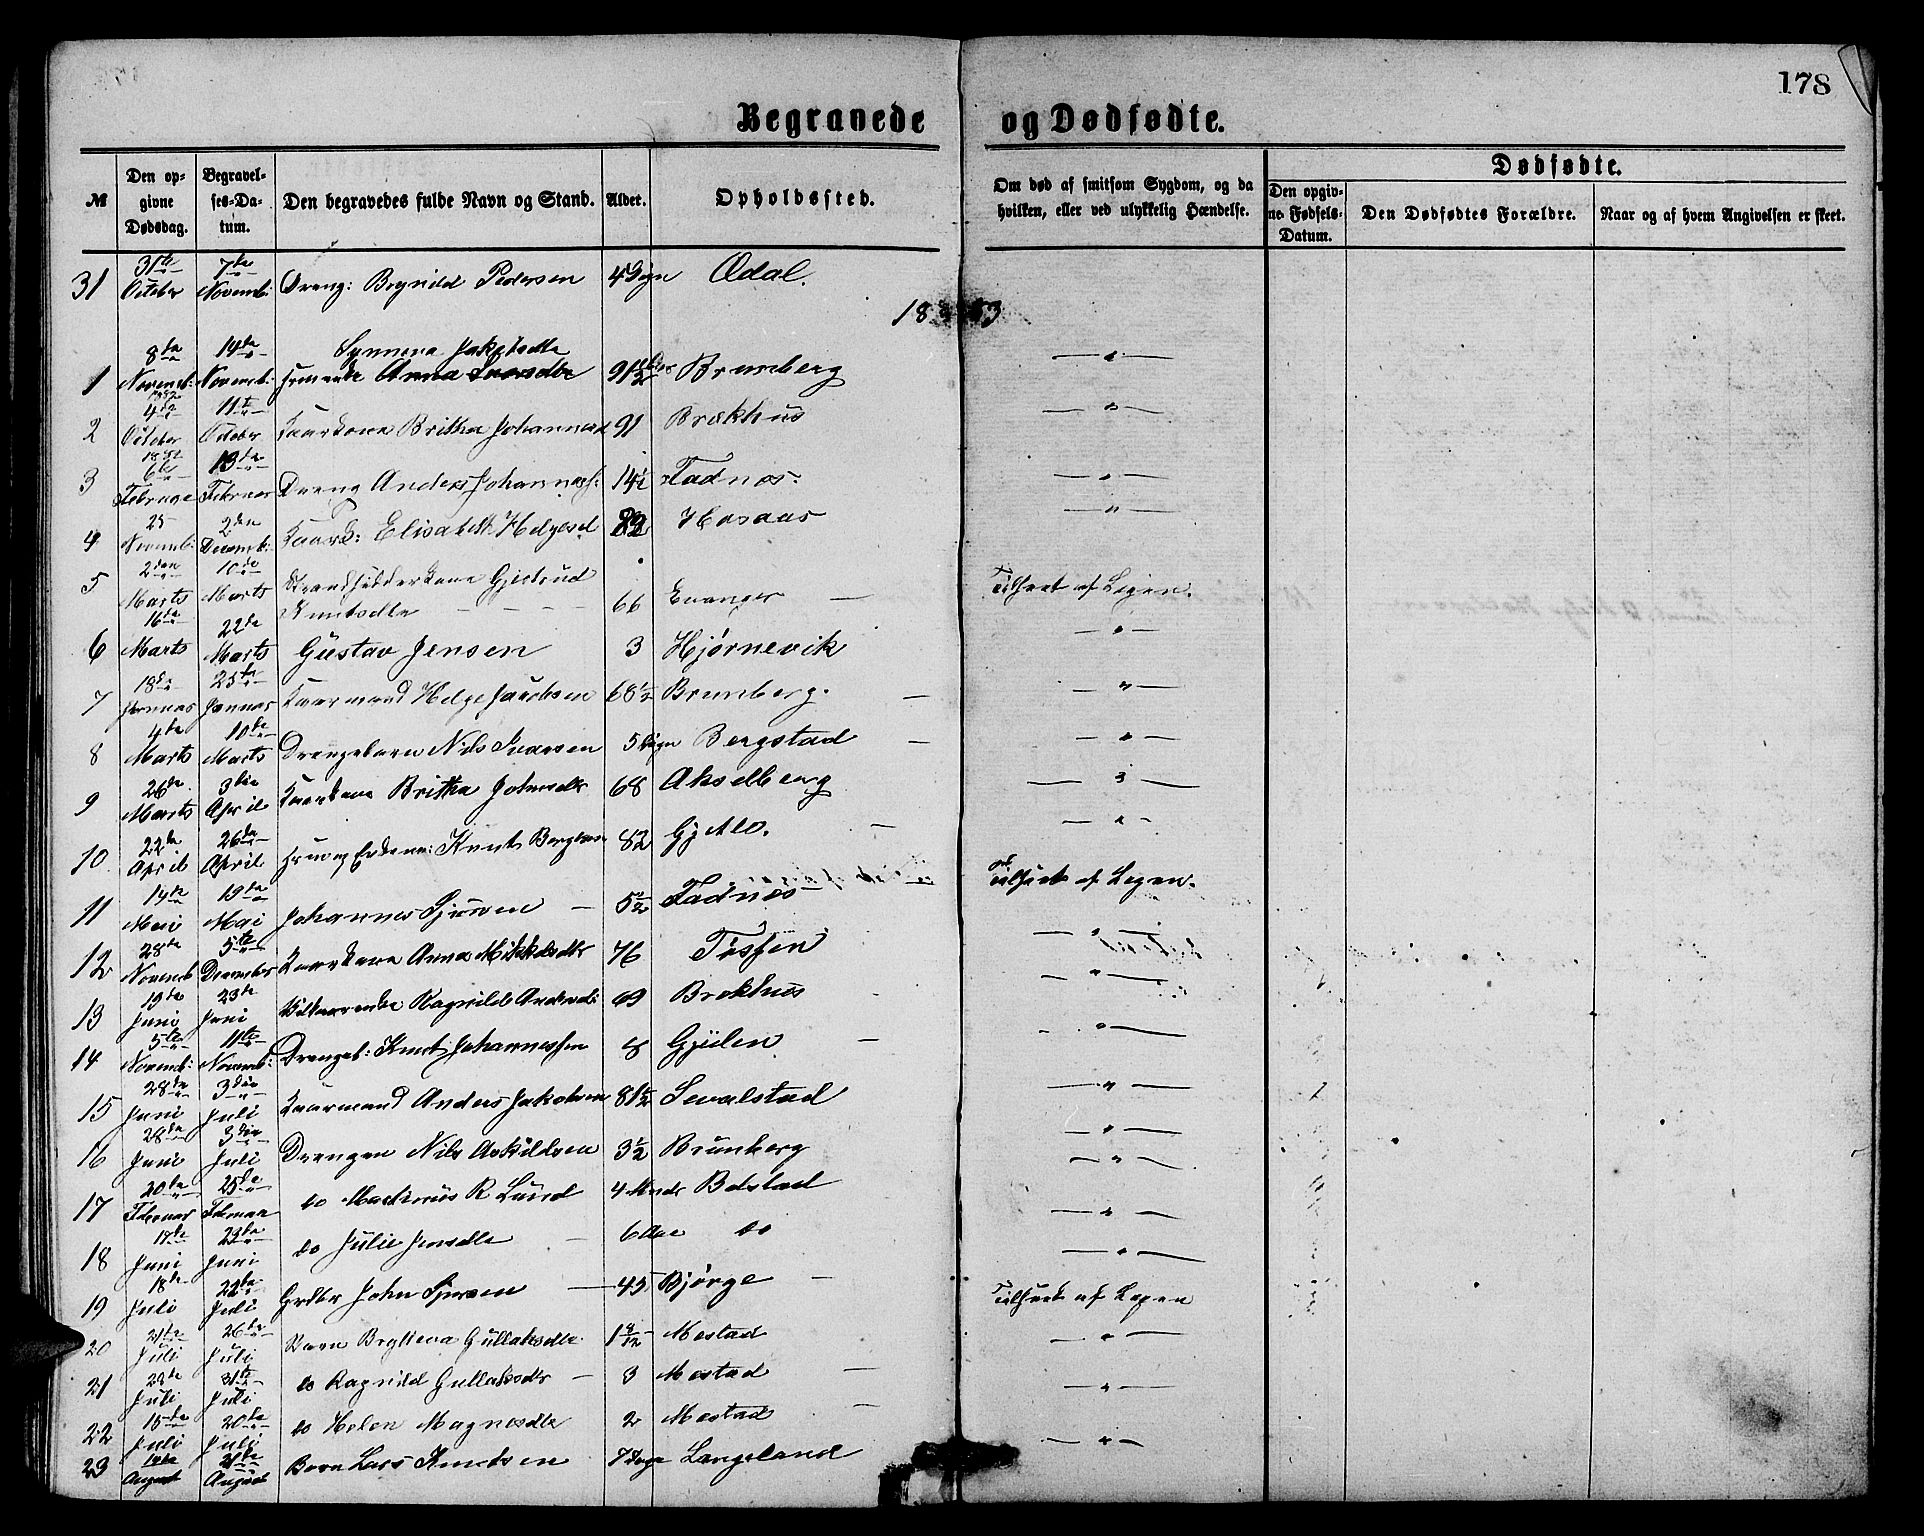 178
Begravede og Dødfødte.
№ Den opgivne Dødsdag. Begravelses-Datum. Den begravedes fulde Navn og Stand. Alder. Opholdssted. Om død af smitsom Sygdom, og da hvilken, eller ved ulykkelig Hændelse. Dødfødte.
Den opgivne Fødsels-Datum. Den Dødfødtes Forældre. Naar og af hvem Angivelsen er skeet.
31 31te October 7de Novemb: Dreng: Brynild Pedersen 4 Døgn Ødal.
1883
1 8de Novemb: 14de Novemb: Synneva Jakobsdtr Anna Ivarsdtr 91 Brunberg — " —
2 4de October 11te October Kaarkone Britha Johannesd 91 Brækhus — " —
3 1882 6te Februar 13de Februar Dreng Anders Johannes: 14½ Fadnes — " —
4 25 Novemb: 2den Decemb: Kaark: Elisabeth Helgesd Hosaas — " —
5 2den Marts 10de Marts Strandsidderkone Gjertrud Knutsdtr 66 Evanger — Tilseet af Legen.
6 16de Marts 22de Marts Gustav Jensen 3 Hjørnevik — " —
7 18de Januar 25de Januar Kaarmand Helge Jacobsen 68½ Brunberg. — — " —
8 4de Marts 10de Marts Drengebarn Nils Ivarsen 5 Døgn Bergstad — — " —
9 26de Marts 3die April Kaarkone Britha Johnsdtr 68 Akselberg — " —
10 22de April 26de April Knut 82 — — " —
11 14de Mai 19de Mai Johannes Sjursen — 5½ Fadnes Tilseet af Legen.
12 28de Novemb 5te December Kaarkone Anna Mikkelsdtr 76 Tøssen — " —
13 19de Juni 23de Juni Ragnilde Andersd: 69 Brekhus — " —
14 5te Novemb: 11te Novemb: Drengeb: Knut Johannessen 8 — — " —
15 28de Juni 3die Juli Kaarmand Anders Jakobsen 81½ Sevalstad — " —
16 28de Juni 3die Juli Drengen Nils Askildsen 3½ Brunberg — " —
17 20de Februar 25de Februar do Martinus R Lund 4 Mndr Bolstad — " —
18 17de Juni 23de Juni do Julie Jensdtr — 6 do — " —
19 18de Juli 22de Juli Grdbr John Sjursen — 45 Bjørge — Tilseet af Legen
20 21de Juli 26de Juli Barn Brytteva Gullaksdtr 1 8/12 Mestad — " —
21 Juli 31te Juli do Ragnild Gullaksdtr — 3 Mestad — — " —
22 15de Juli 20de Juli do Helen Magnesdtr 2 Mestad —
23 August 21de August Barn Lars Knudsen 7 Døgn Langeland — " —